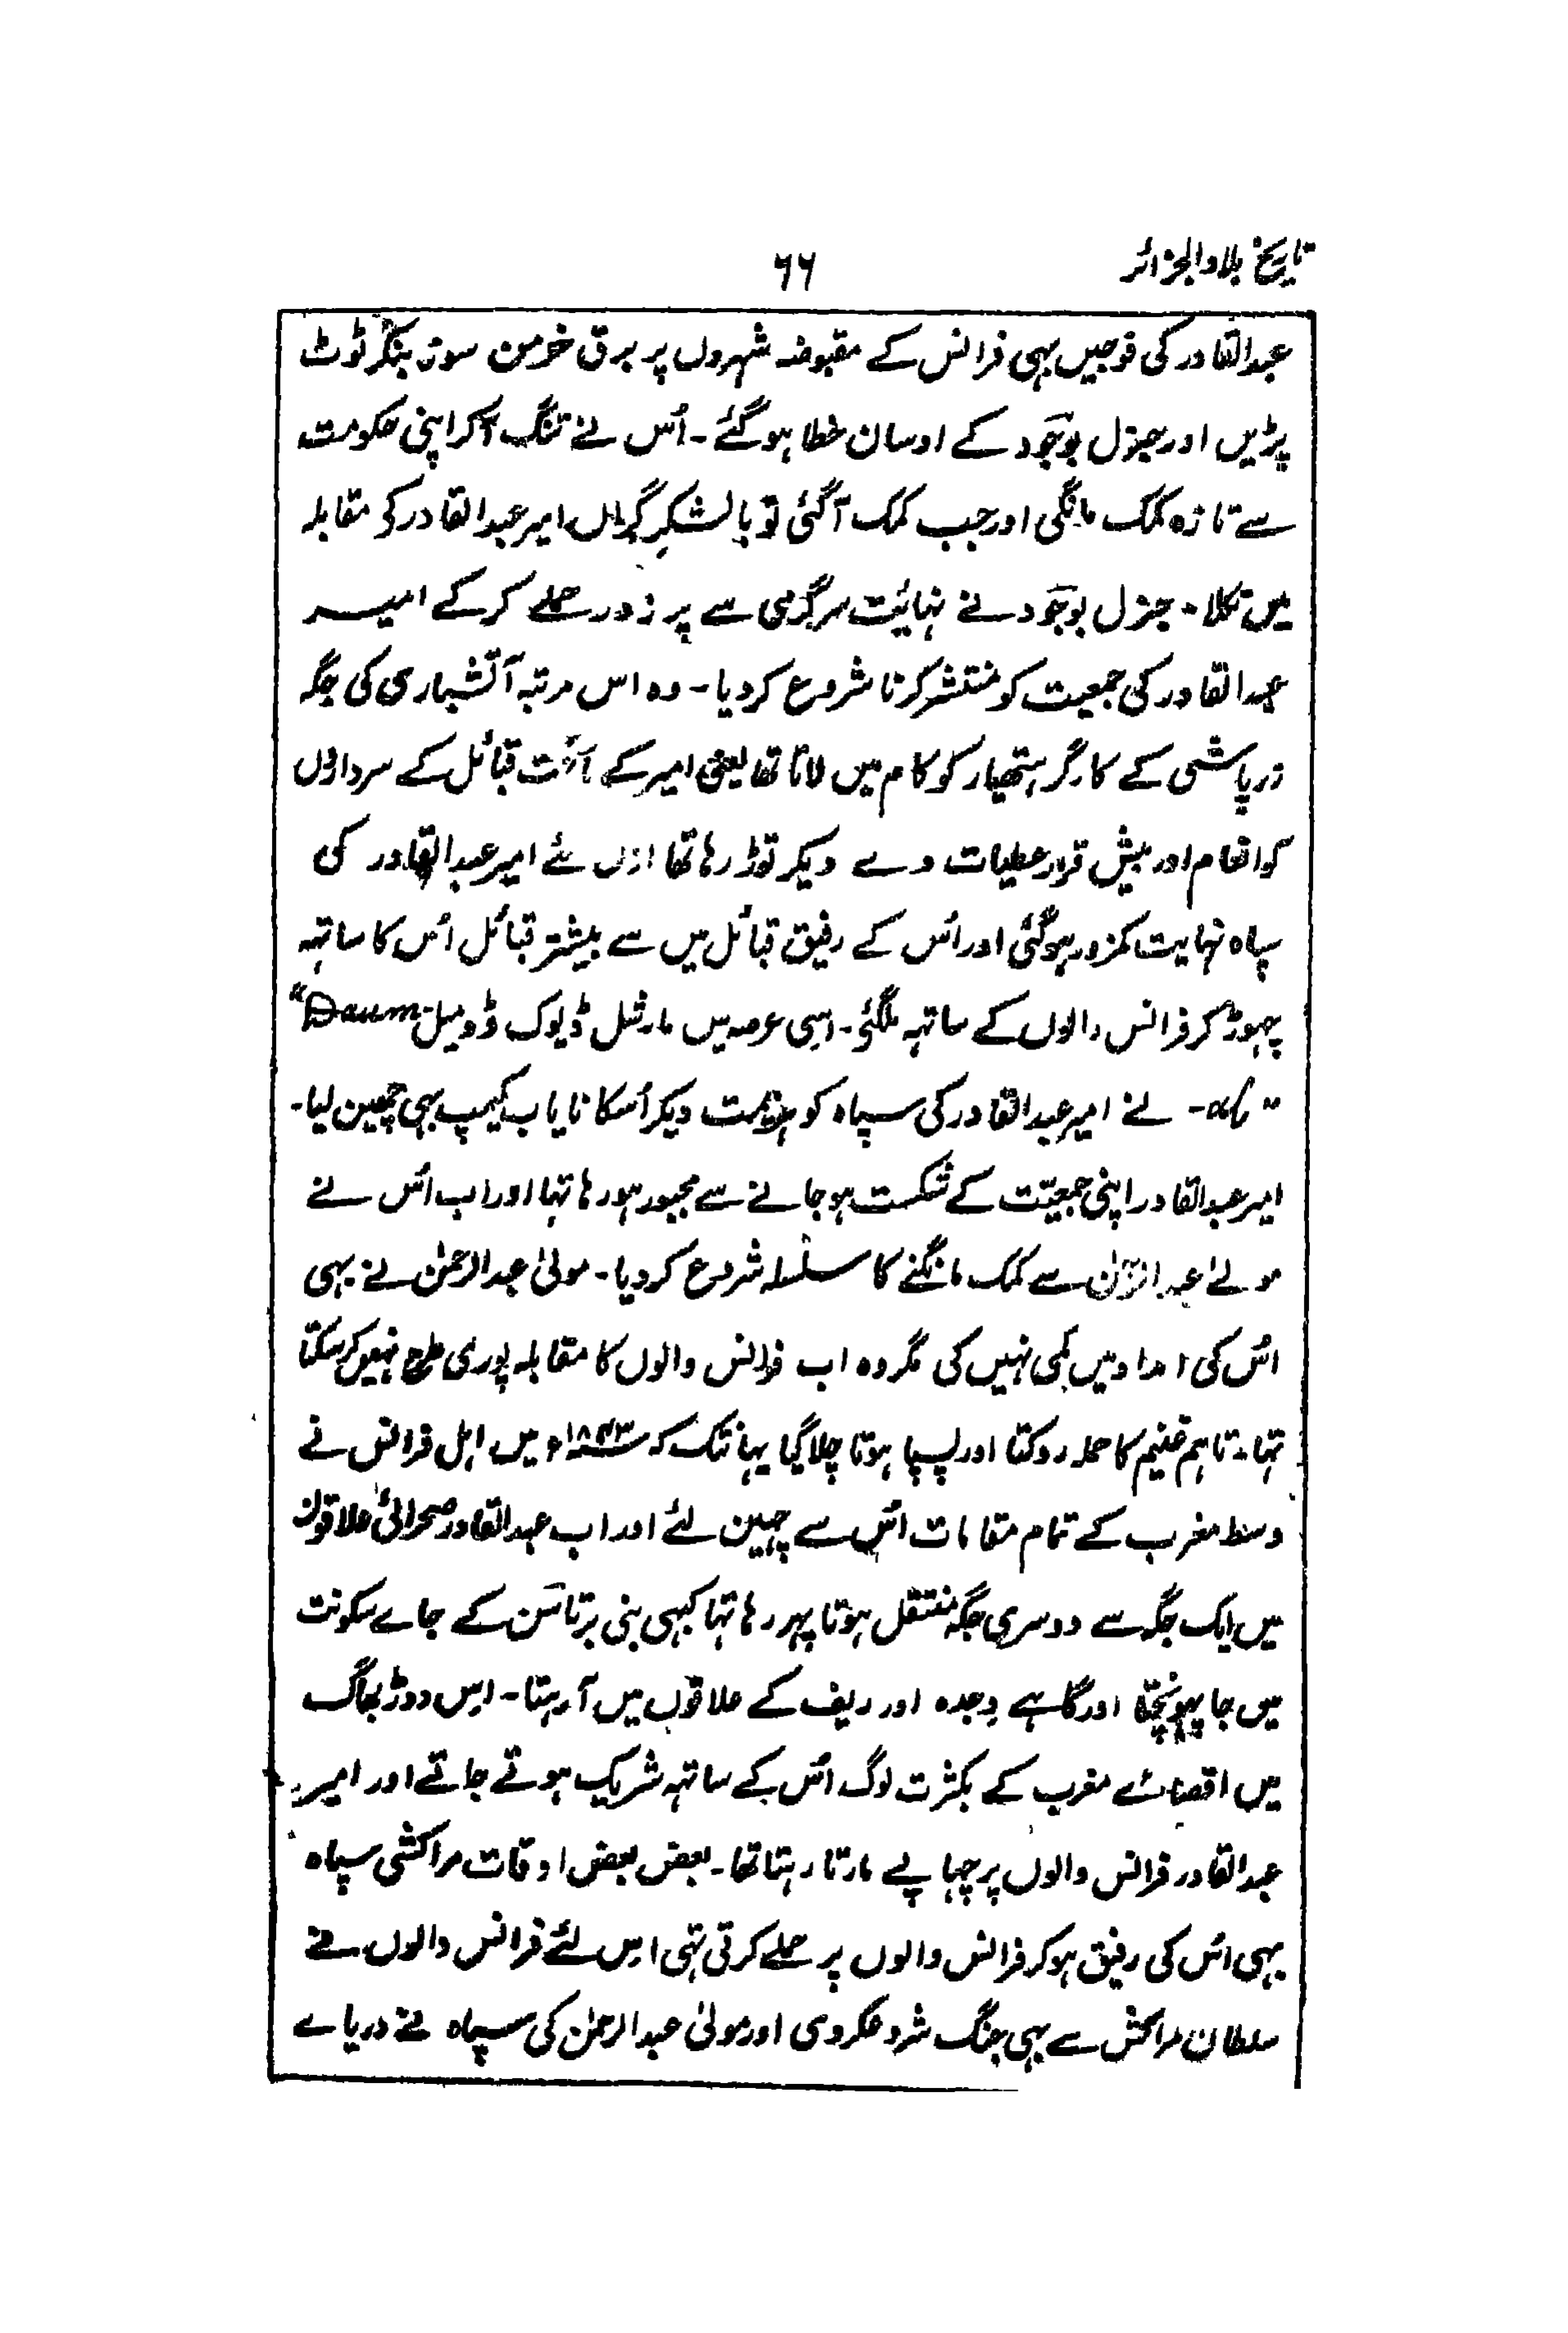 تاریخ بلاد الجزائر ۶۶
عبدالقادر کی فوجیں بہی فرانس کے مقبوضہ شہروں پر برق خرمن سوز بنکر ٹوٹ
پڑیں اور جنرل بوجود کے اوسان خطا ہوگئے ۔ اُس نے تنگ آکر اپنی حکومت
سے تازہ کمک مانگی اور جب کمک آگئی تو بالشکرِ گراں امیر عبدالقادر کے مقابلہ
میں نکلا ۔ جنرل بوجود نے نہائیت سرگرمی سے پر زور حملے کرکے امیر
عبدالقادر کی جمعیت کو منتشر کرنا شروع کردیا ۔ وہ اس مرتبہ آتشباری کی جگہ
زرپاشی کے کارگر ہتھیار کو کام میں لاتا تھا یعنی امیر کے ماتحت قبائل کے سرداروں
کو انعام اور بیش قرار عطیات دے دیکر توڑ رہا تھا اس لئے امیر عبدالقادر کی
سپاہ نہایت کمزور ہوگئی اور اُس کے رفیق قبائل میں سے بیشتر قبائل اُس کا ساتہہ
چہوڑ کر فرانس والوں کے ساتہہ ملگئے ۔ اسی عرصہ میں مارشل ڈیوک ڈومیل "Daum
ale" ۔ نے امیر عبدالقادر کی سپاہ کو ہزیمت دیکر اُسکا نایاب کیمپ بہی چھین لیا ۔
امیر عبدالقادر اپنی جمعیّت کے شکست ہوجانے سے مجبور ہو رہا تہا اور اب اُس نے
مولےٰ عبدالرحمٰن سے کمک مانگنے کا سلسلہ شروع کردیا ۔ مولیٰ عبدالرحمٰن نے بہی
اُس کی امداد میں کمی نہیں کی مگر وہ اب فرانس والوں کا مقابلہ پوری طرح نہیں کرسکتا
تہا ۔ تاہم غنیم کا حملہ روکتا اور پسپا ہوتا چلا گیا یہانتک کہ ۱۸۴۳ء میں اہل فرانس نے
وسط مغرب کے تمام مقامات اُس سے چہین لئے اور اب عبدالقادر صحرائی علاقوں
میں ایک جگہ سے دوسری جگہ منتقل ہوتا پہر رہا تہا کبہی بنی برتاسن کے جاے سکونت
میں جا پہونچتا اور گاہے وجدہ اور ریف کے علاقوں میں آ رہتا ۔ اِس دوڑ بھاگ
میں اقصائے مغرب کے بکثرت لوگ اُس کے ساتہہ شریک ہوتے جاتے اور امیر
عبدالقادر فرانس والوں پر چہاپے مارتا رہتا تھا ۔ بعض بعض اوقات مراکشی سپاہ
بہی اُس کی رفیق ہوکر فرانس والوں پر حملے کرتی تہی اِس لئے فرانس والوں نے
سلطان مراکش سے بہی جنگ شروعکردی اور مولیٰ عبدالرحمٰن کی سپاہ نے دریاے